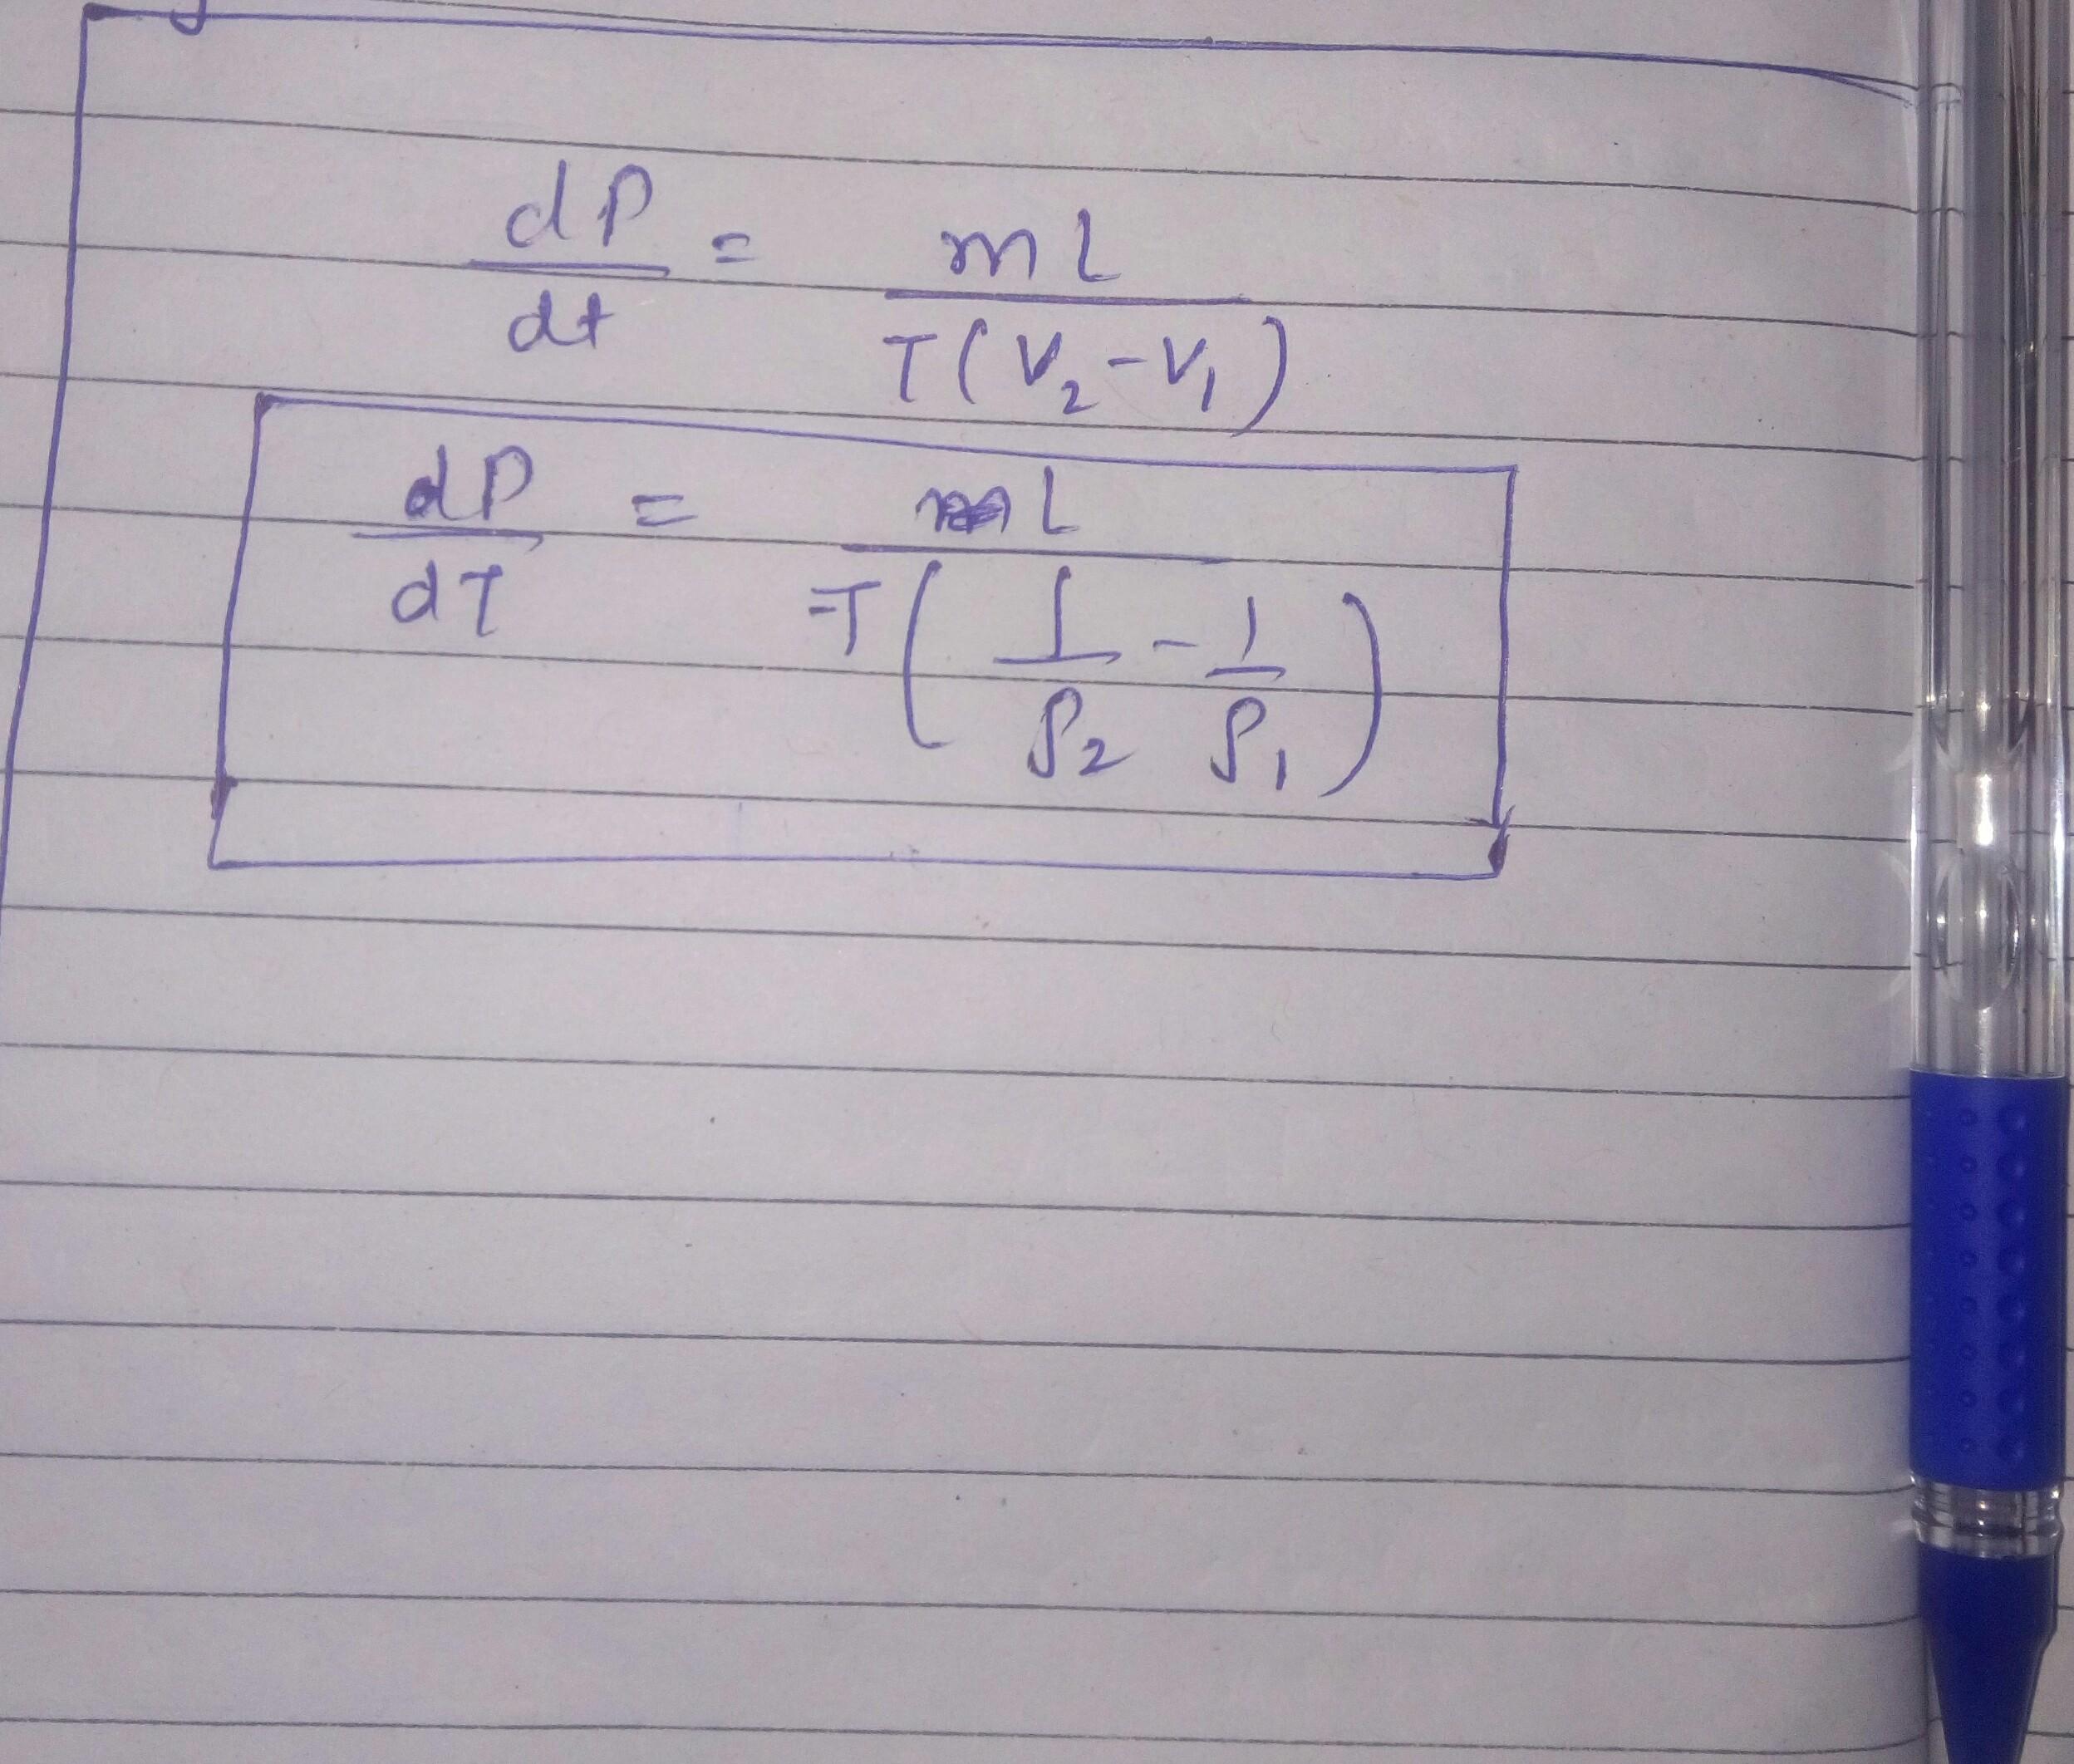 dP/dt = mL/T(V₂-V₁)
dP/dT = L/T(1/ρ₂ - 1/ρ₁)